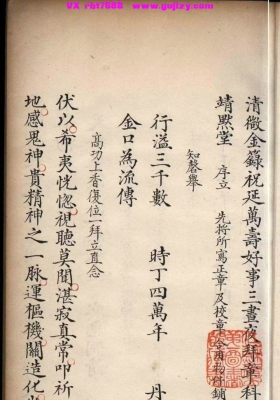 VX rbt7688 www.gujizy.com
清微金籙祝延萬壽好事三晝夜拜章科
靖黙堂 序立 先将所寫正章及校章
知磬舉
行溢三千數 時丁四萬年 丹
金口為流傳
高功上香復位一拜立直念
伏以希夷恍惚視聽莫聞湛寂真常叩祈
地感鬼神貴精神之一脉運樞機關造化